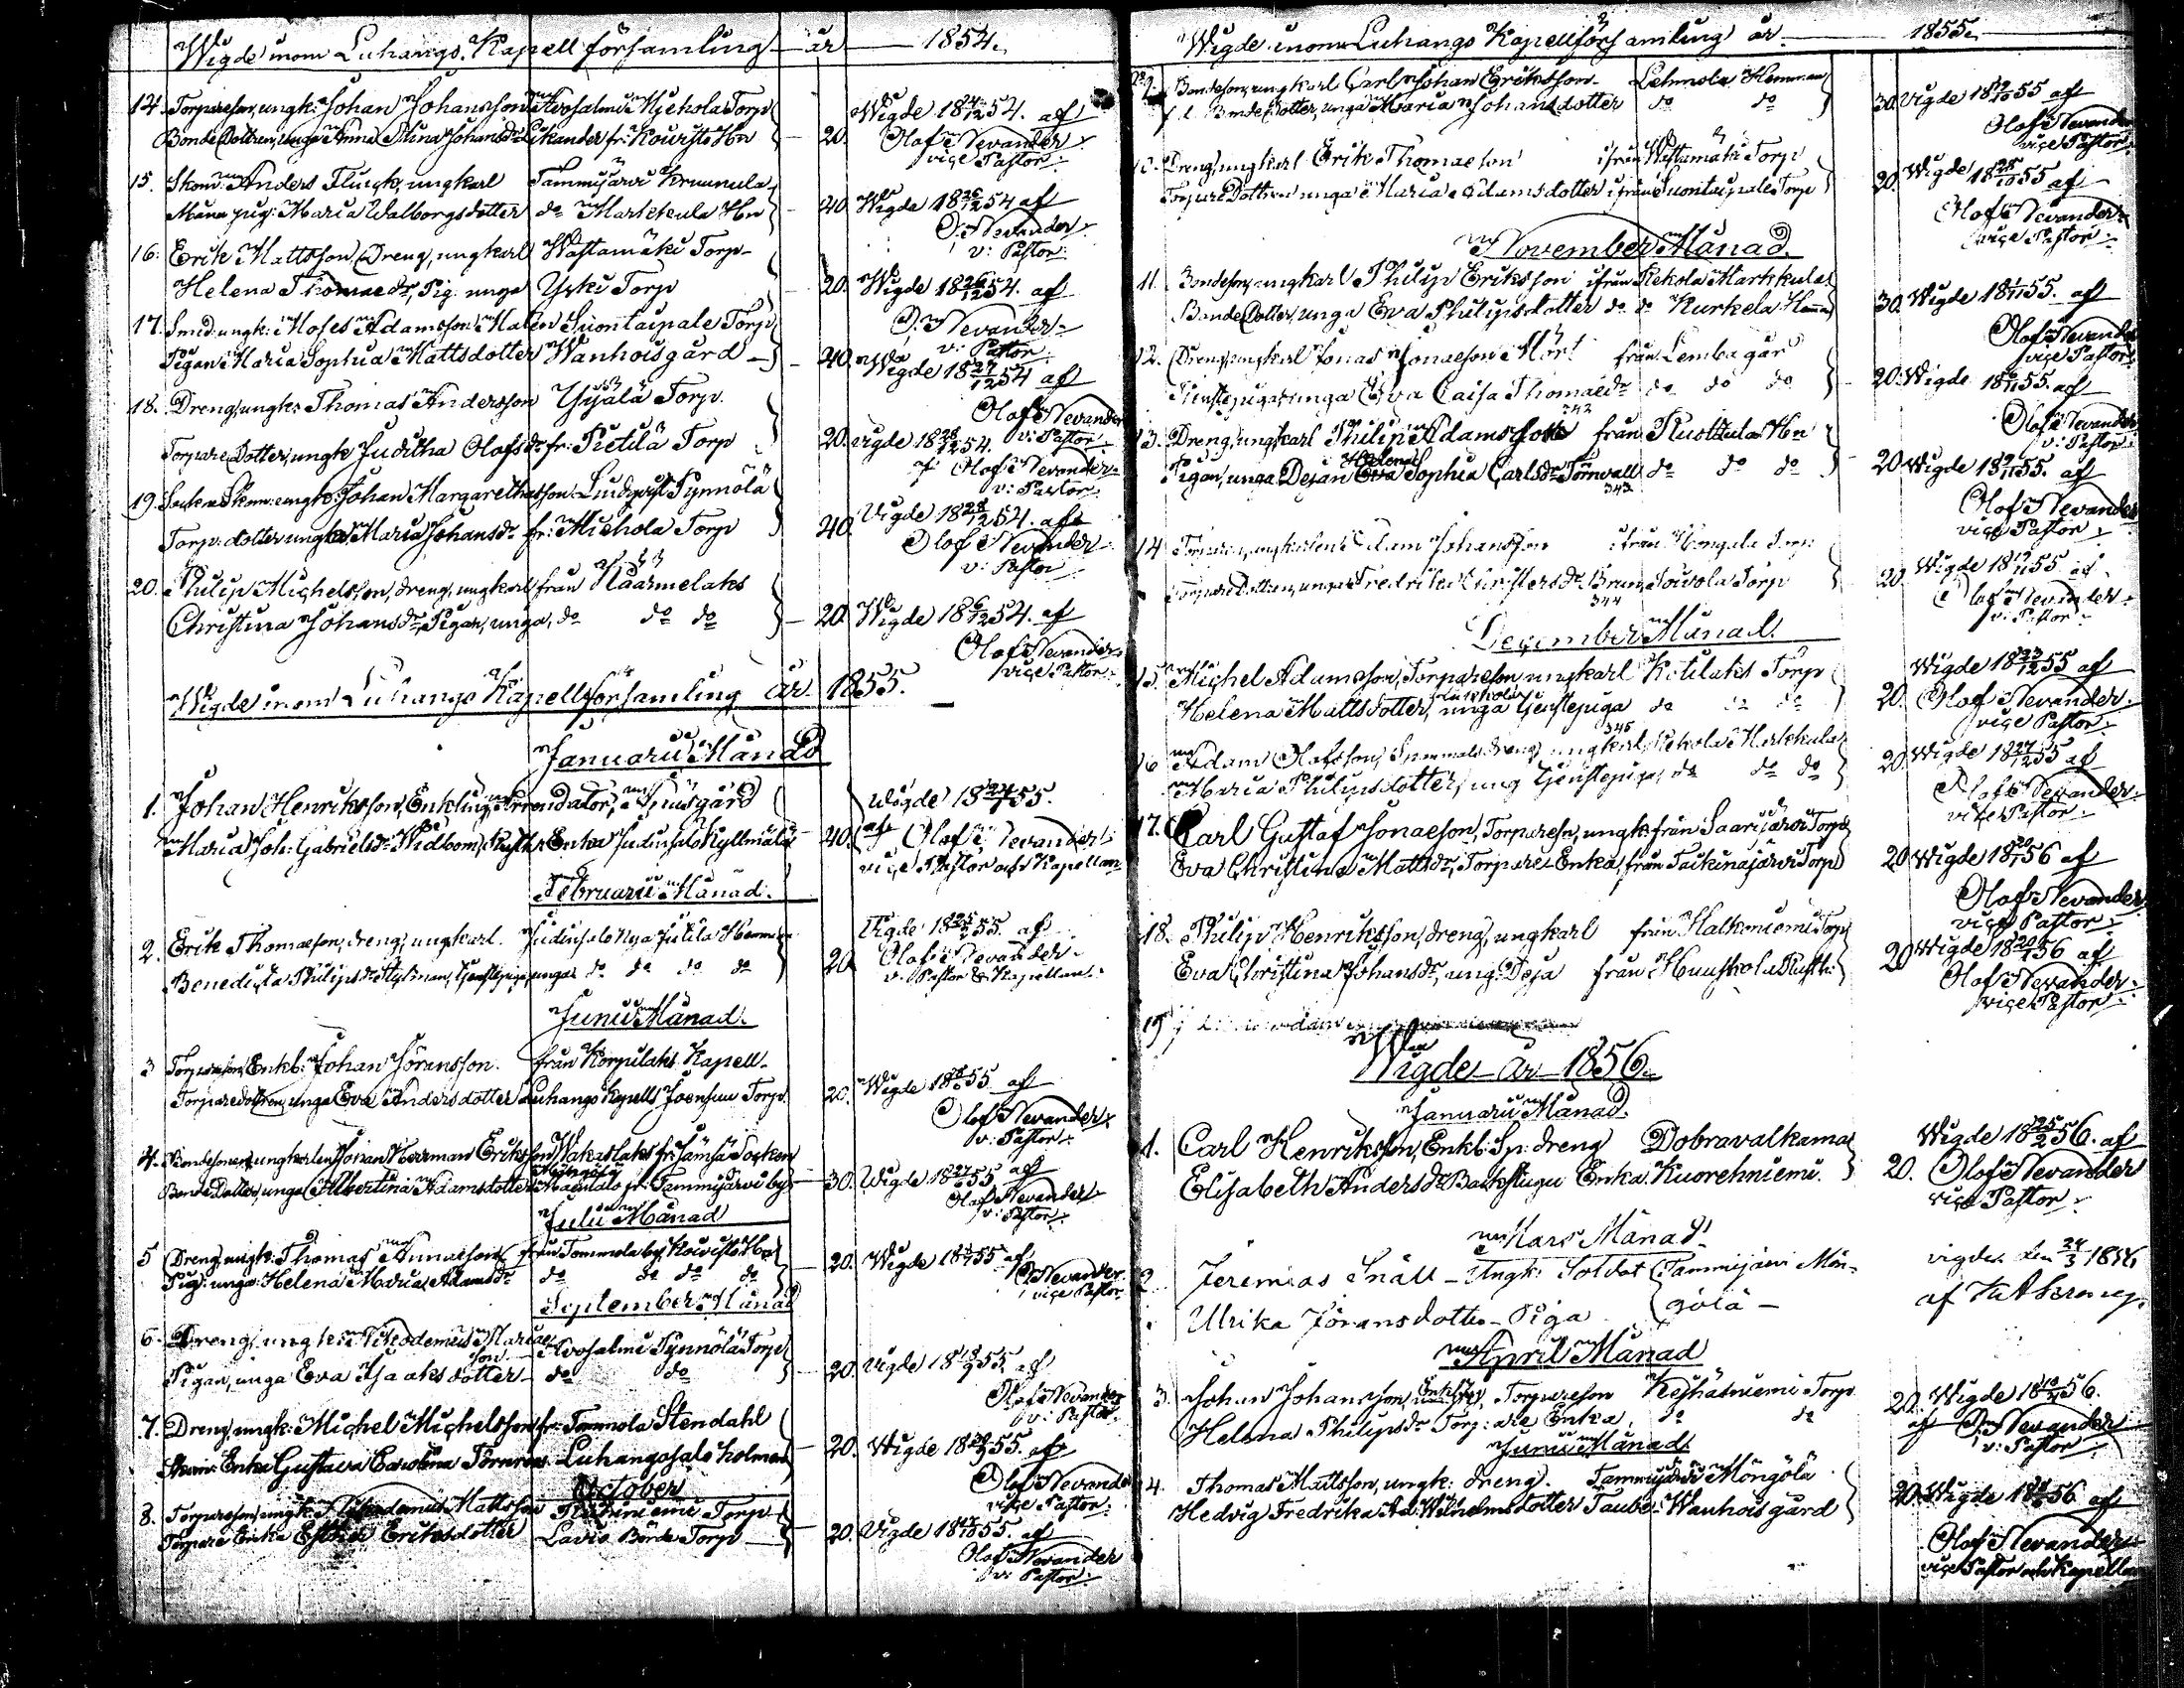 Wigde inom Luhangs Kapell församling år 1854.
14. Torpareson, ungk: Johan Johansson Avosalmi Mjehola Torp
Bonde Dottren, unga Anna Stina Johansdr Likander fr: Kouvisto Hn
20. Wigde 18 24/12 54. af
Olof Nevander
viçe Pastor.
15. Skom: Anders Flugk, ungkarl Tammijärvi Krunnula
pig: Maria Walborgsdotter do Markkula Hn
40. Wigde 18 26/12 54 af
O. Nevander
v: Pastor.
16. Erik Mattsson, Dreng, ungkarl Wastamäki Torp
Helena Thomaedr, Pig. unga Yski Torp
20. Wigde 18 26/12 54. af
O. Nevander
v: Pastor
17. Smed. ungk: Moses Adamsson Malin Suontaipale Torp
Pigan Maria Sophia Mattsdotter Wanhoisgård
40. Wigde 18 27/12 54 af
Olof Nevander
v: Pastor
18. Dreng, ungk: Thomas Andersson Yijälä Torp.
Torpare Dotter, ungk Juditha Olofsdr fr: Pietilä Torp
20. Vigde 18 28/12 54.
Olof Nevander
v: Pastor
19. Socken Skom: ungk: Johan Margarethasson Lindqvist Pynnölä
Torp: dotter ungk: Maria Johansdr fr: Miehola Torp
40. Vigde 18 28/12 54. af
Olof Nevander
v: Pastor
20. Philip Michelsson, dreng, ungkarl från Häärmelaks
Christina Johansdr, Pigan, unga, do do do
20. Wigde 18 6/12 54. af
Olof Nevander
viçe Pastor
Wigde inom Luhangs Kapellförsamling år 1855.
Januarii Månad
1. Johan Henriksson, Enkling Arrendator, Tyrisgård
Maria Joh: Gabrielsdr Widbom, Enka Judinsalo Kyllmälä
40. Wigde 18 24/1 55.
af Olof Nevander
viçe Pastor och Kapellan
Februarii Månad.
2. Erik Thomaeson, dreng, ungkarl. Judinsalo Nya Jutila Hemman
Benedicta Philipsdr Nyman, tjenstepiga, unga do do do do
20. Vigde 18 25/2 55. af
Olof Nevander
v: Pastor & Kapellan
Junii Månad.
3 Torpareson, Enkl: Johan Göransson. från Korpilaks Kapell
Torparedottren, unga Eva Andersdotter Luhango Kapells Joensuu Torp.
20. Wigde 18 /6 55 af
Olof Nevander
v: Pastor
4. Bondesonen, ungkarlen Johan Herman Eriksson, Wakarlaks fr: Jämsä Socken
Bonde Dotter, unga Albertina Adamsdotter fr: Tammijärvi by
30. Wigde 18 24/6 55 af
Olof Nevander
v: Pastor
Julii Månad
5 Dreng, ungk: Thomas Annaeson från Tommola by, Kouvisto Hn
Pig: unga Helena Maria Adamsdr do do do do
20. Wigde 18 55 af
O. Nevander
viçe Pastor
September Månad
6. Dreng, ungk: Nikodemus Mariaeson Avosalmi Pynnölä Torp
Pigan, unga Eva Isaaksdotter do do
20. Vigde 18 18/9 55 af
Olof Nevander
v: Pastor
7. Dreng, ungk: Michel Michelsson fr: Tommola Stendahl
Enka Gustava Carolina Törnroos Luhangosalo holmen
20. Wigde 18 55. af
Olof Nevander
viçe Pastor
October
8. Torpareson, ungk: Nikodemus Mattsson Torp
Torpare Enka Esther Eriksdotter Lavis Börda Torp
20. Vigde 18 /10 55. af
Olof Nevander
v: Pastor
Wigde inom Luhangs Kapellförsamling år 1855.
9. Bondeson, ungkarl Carl Johan Eriksson Lehmola Hemman
Bonde Dotter, unga Maria Johansdotter do do
30. Vigde 18 /10 55 af
Olof Nevander
viçe Pastor
10. Dreng, ungkarl Erik Thomaeson ifrån Wastamäki Torp
Torpare Dottren unga Maria Adamsdotter ifrån Suontaipale Torp
20. Wigde 18 28/10 55 af
Olof Nevander
viçe Pastor
November Månad.
11. Bondeson, ungkarl Philip Eriksson ifrån Kekola Markkula
Bonde Dotter, unga Eva Philipsdotter do do Kurkela Hemman
30. Wigde 18 /11 55. af
Olof Nevander
viçe Pastor
12. Dreng, ungkarl Jonas Jonaeson Mört från Lemba går
Tjenstepigan, unga Eva Caisa Thomaedr do do do
20. Wigde 18 /11 55. af
Olof Nevander
v: Pastor
342
13. Dreng, ungkarl Philip Adamsson från Ruottula Hn
Helena
Pigan, unga Dejan Eva Sophia Carlsdr Törnvall do do do
343
20 Wigde 18 /11 55. af
Olof Nevander
viçe Pastor
14 ungkarlen Adam Johansson ifrån Hongala Torp
Torpare Dottren, unga Fredrika Christersdr Brun, Toivola Torp
344
20. Wigde 18 /11 55 af
Olof Nevander
v: Pastor
December Månad.
15. Michel Adamsson, Torpareson ungkarl Kotilaks Torp
Helena Mattsdotter, unga tjenstepiga do do do
345
20. Wigde 18 23/12 55 af
Olof Nevander
viçe Pastor
16 Adam Olofsson, dreng, ungkarl, Kekola Markkula
Maria Philipsdotter, ung tjenstepiga, do do do
20. Wigde 18 27/12 55 af
Olof Nevander
viçe Pastor
17. Carl Gustaf Jonaeson, Torpareson, ungk: från Saarijärvi Torp
Eva Christina Mattsdr, Torpare-Enka, från Taikinajärvi Torp
20 Wigde 18 20/1 56 af
Olof Nevander
viçe Pastor
18. Philip Henriksson, dreng, ungkarl från Halkoniemi Torp
Eva Christina Johansdr, ung: Deja från Huuskola Rusth:
20 Wigde 18 56 af
Olof Nevander
viçe Pastor
19
Wigde år 1856.
Januarii Månad.
1. Carl Henriksson, Enkl: Sp: dreng Dobravalkama
Elisabeth Andersdr Backstugu Enka Kuorehniemi.
20. Wigde 18 25/2 56. af
Olof Nevander
viçe Pastor
Mars Månad
2 Jeremias Snäll - Ungk: Soldat Tammijärvi Mön-
Ulrika Göransdotter - Piga gölä -
vigder den 24/3 1856
af
April Månad
3. Johan Johansson, Enkling, Torpareson Keihäsniemi Torp
Helena Philipsdr Torp: are Enka, do do
20. Wigde 18 56.
af O. Nevander
v: Pastor
Junii Månad.
4. Thomas Mattsson, ungk: dreng. Tammijärvi Möngölä
Hedvig Fredrika Ad: Wilhelmsdotter Taube- Wanhoisgård
20. Wigde 18 56 af
Olof Nevander
viçe Pastor och Kapellan